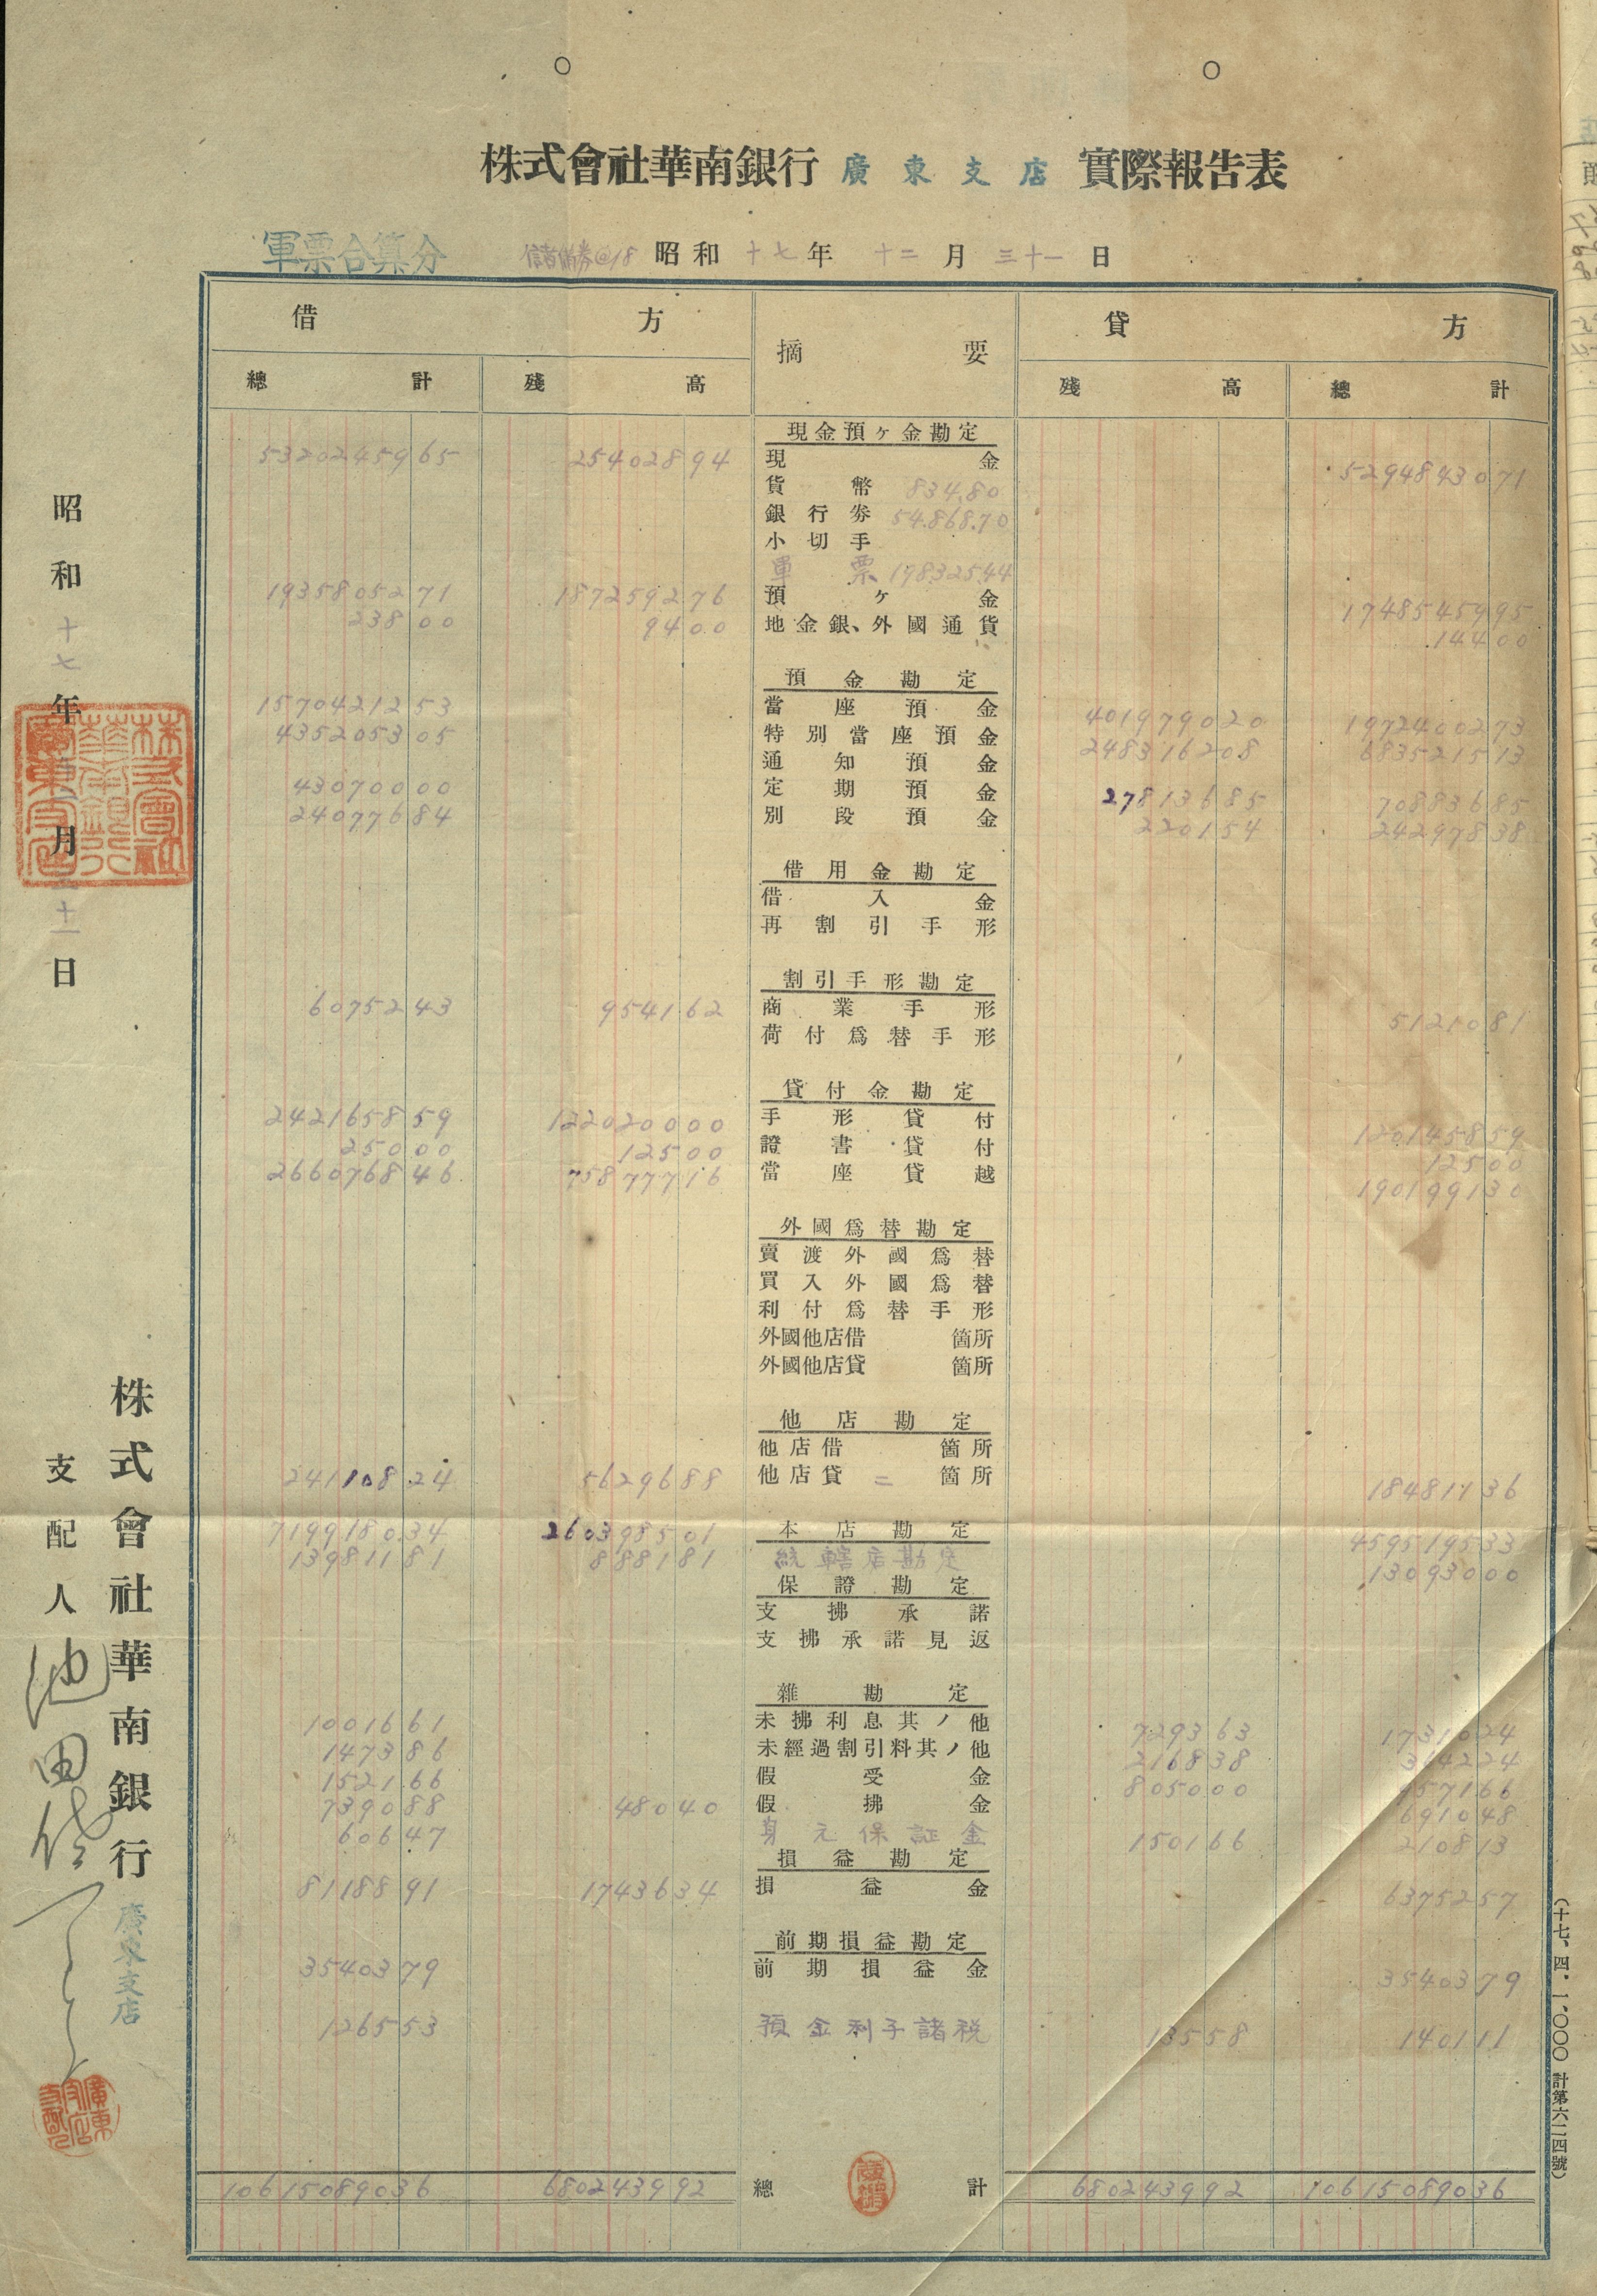 株式會社華南銀行 廣東支店 實際報告表
軍票合算分 儲備券@18 昭和十七年十二月三十一日
借方 摘要 貸方
總計 殘高 殘高 總計
現金預ヶ金勘定
53202459 65 254028 94 現金 52948430 71
貨幣 834.80
銀行券 54.868.70
小切手
軍票 198325.44
19358052 71 1872592 76 預ヶ金 17485459 95
238 00 94 00 地金銀、外國通貨 144 00
預金勘定
15704212 53 當座預金 4019790 20 19724002 73
4352053 05 特別當座預金 2483162 08 6835215 13
通知預金
430700 00 定期預金 278136 85 708836 85
240776 84 別段預金 2201 54 242978 38
借用金勘定
借入金
再割引手形
割引手形勘定
60752 43 9541 62 商業手形 51210 81
荷付爲替手形
貸付金勘定
2421658 59 1220200 00 手形貸付 1201458 59
250 00 125 00 證書貸付 125 00
2660768 46 758777 16 當座貸越 1901991 30
外國爲替勘定
賣渡外國爲替
買入外國爲替
利付爲替手形
外國他店借 箇所
外國他店貸 箇所
他店勘定
他店借 箇所
241108 24 56296 88 他店貸 二 箇所 184811 36
7199180 34 2603985 01 本店勘定 4595195 33
139811 81 8881 81 統轄店勘定 130930 00
保證勘定
支拂承諾
支拂承諾見返
雜勘定
10016 61 未拂利息其ノ他 7293 63 17310 24
1473 86 未經過割引料其ノ他 2168 38 3642 24
1521 66 假受金 8050 00 9571 66
7390 88 480 40 假拂金 6910 48
606 47 身元保証金 1501 66 2108 13
損益勘定
81188 91 17436 34 損益金 63752 57
前期損益勘定
35403 79 前期損益金 35403 79
1265 53 預金利子諸税 135 58 1401 11
106150890 36 6802439 92 總計 6802439 92 106150890 36
昭和十七年十二月三十一日
株式會社華南銀行 廣東支店
支配人 池田
株式會社華南銀行廣東支店
(十七、四.一,〇〇〇 計第六二四號)